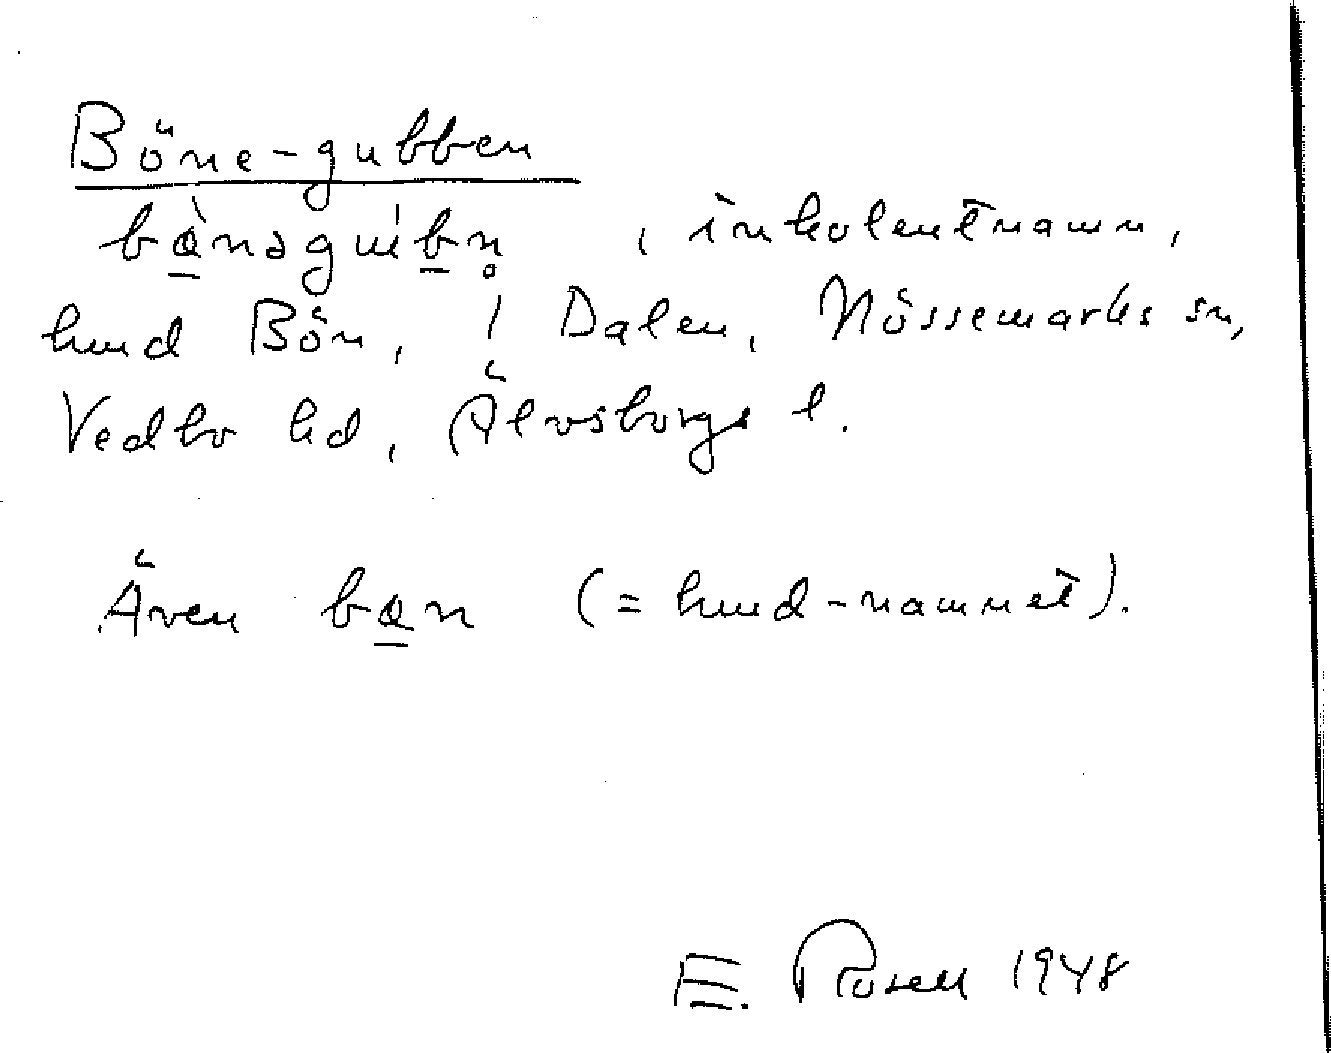 Böne-gubben
bànəguíbn̥, inkolentnamn,
hmd Bön, i Dalen, Nössemarks sn,
Vedbo hd, Älvsborgs l.
Även bɑn (= hmd-namnet).
E. Rosell 1948